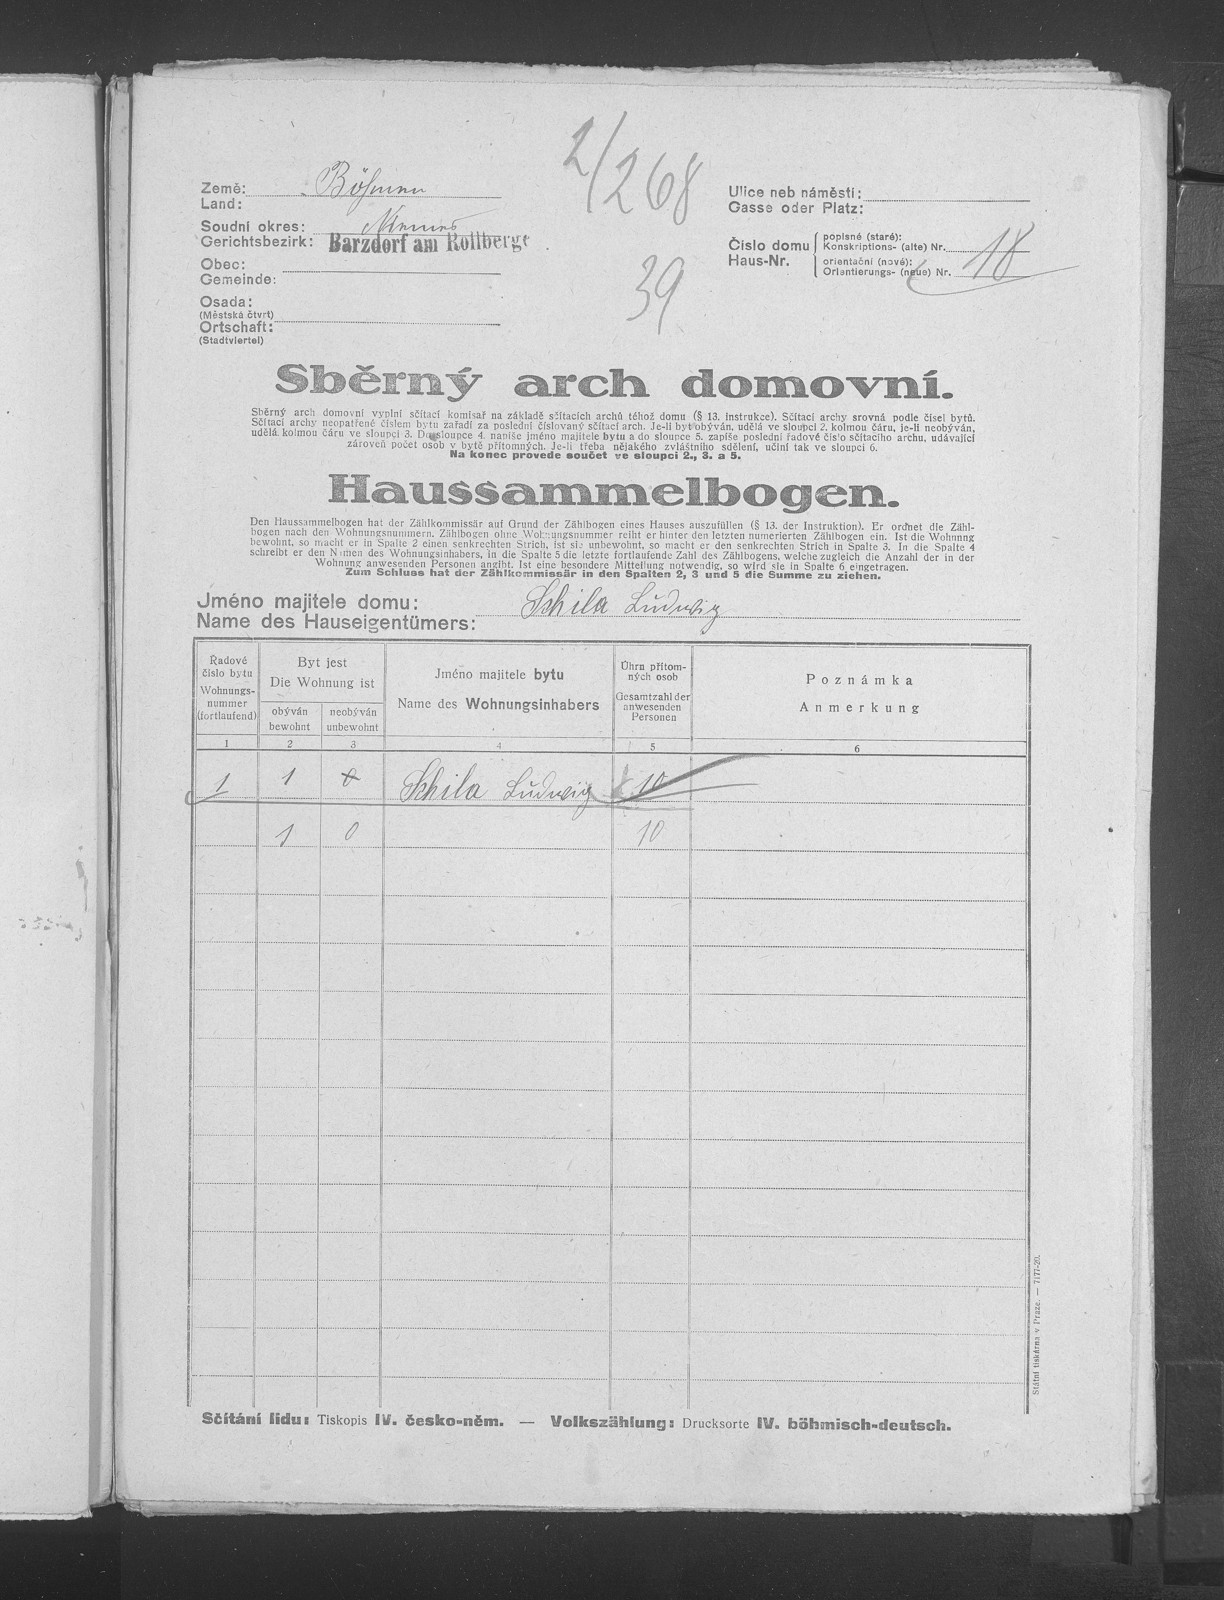 2/268
39
Země: Böhmen
Land:
Soudní okres: Niemes
Gerichtsbezirk: Barzdorf am Rollberge
Obec:
Gemeinde:
Osada:
(Městská čtvrť)
Ortschaft:
(Stadtviertel)
Ulice neb náměstí:
Gasse oder Platz:
Číslo domu
Haus-Nr.
popisné (staré):
Konskriptions- (alte) Nr.
orientační (nové):
Orientierungs- (neue) Nr. 18
Sběrný arch domovní.
Sběrný arch domovní vyplní sčítací komisař na základě sčítacích archů téhož domu (§ 13. instrukce). Sčítací archy srovná podle čísel bytů.
Sčítací archy neopatřené číslem bytu zařadí za poslední číslovaný sčítací arch. Je-li byt obýván, udělá ve sloupci 2. kolmou čáru, je-li neobýván,
udělá kolmou čáru ve sloupci 3. Do sloupce 4. napíše jméno majitele bytu a do sloupce 5. zapíše poslední řadové číslo sčítacího archu, udávající
zároveň počet osob v bytě přítomných. Je-li třeba nějakého zvláštního sdělení, učiní tak ve sloupci 6.
Na konec provede součet ve sloupci 2., 3. a 5.
Haussammelbogen.
Den Haussammelbogen hat der Zählkommissär auf Grund der Zählbogen eines Hauses auszufüllen (§ 13. der Instruktion). Er ordnet die Zähl-
bogen nach den Wohnungsnummern. Zählbogen ohne Wohnungsnummer reiht er hinter den letzten numerierten Zählbogen ein. Ist die Wohnung
bewohnt, so macht er in Spalte 2 einen senkrechten Strich, ist sie unbewohnt, so macht er den senkrechten Strich in Spalte 3. In die Spalte 4
schreibt er den Namen des Wohnungsinhabers, in die Spalte 5 die letzte fortlaufende Zahl des Zählbogens, welche zugleich die Anzahl der in der
Wohnung anwesenden Personen angibt. Ist eine besondere Mitteilung notwendig, so wird sie in Spalte 6 eingetragen.
Zum Schluss hat der Zählkommissär in den Spalten 2, 3 und 5 die Summe zu ziehen.
Jméno majitele domu: Schila Ludwig
Name des Hauseigentümers:
Řadové
číslo bytu
Wohnungs-
nummer
(fortlaufend)
Byt jest
Die Wohnung ist
obýván
bewohnt
neobýván
unbewohnt
Jméno majitele bytu
Name des Wohnungsinhabers
Úhrn přítom-
ných osob
Gesamtzahl der
anwesenden
Personen
Poznámka
Anmerkung
1 2 3 4 5 6
1 1 0 Schila Ludwig 10
1 0 10
Sčítání lidu: Tiskopis IV. česko-něm. — Volkszählung: Drucksorte IV. böhmisch-deutsch.
Státní tiskárna v Praze. — 7177-20.